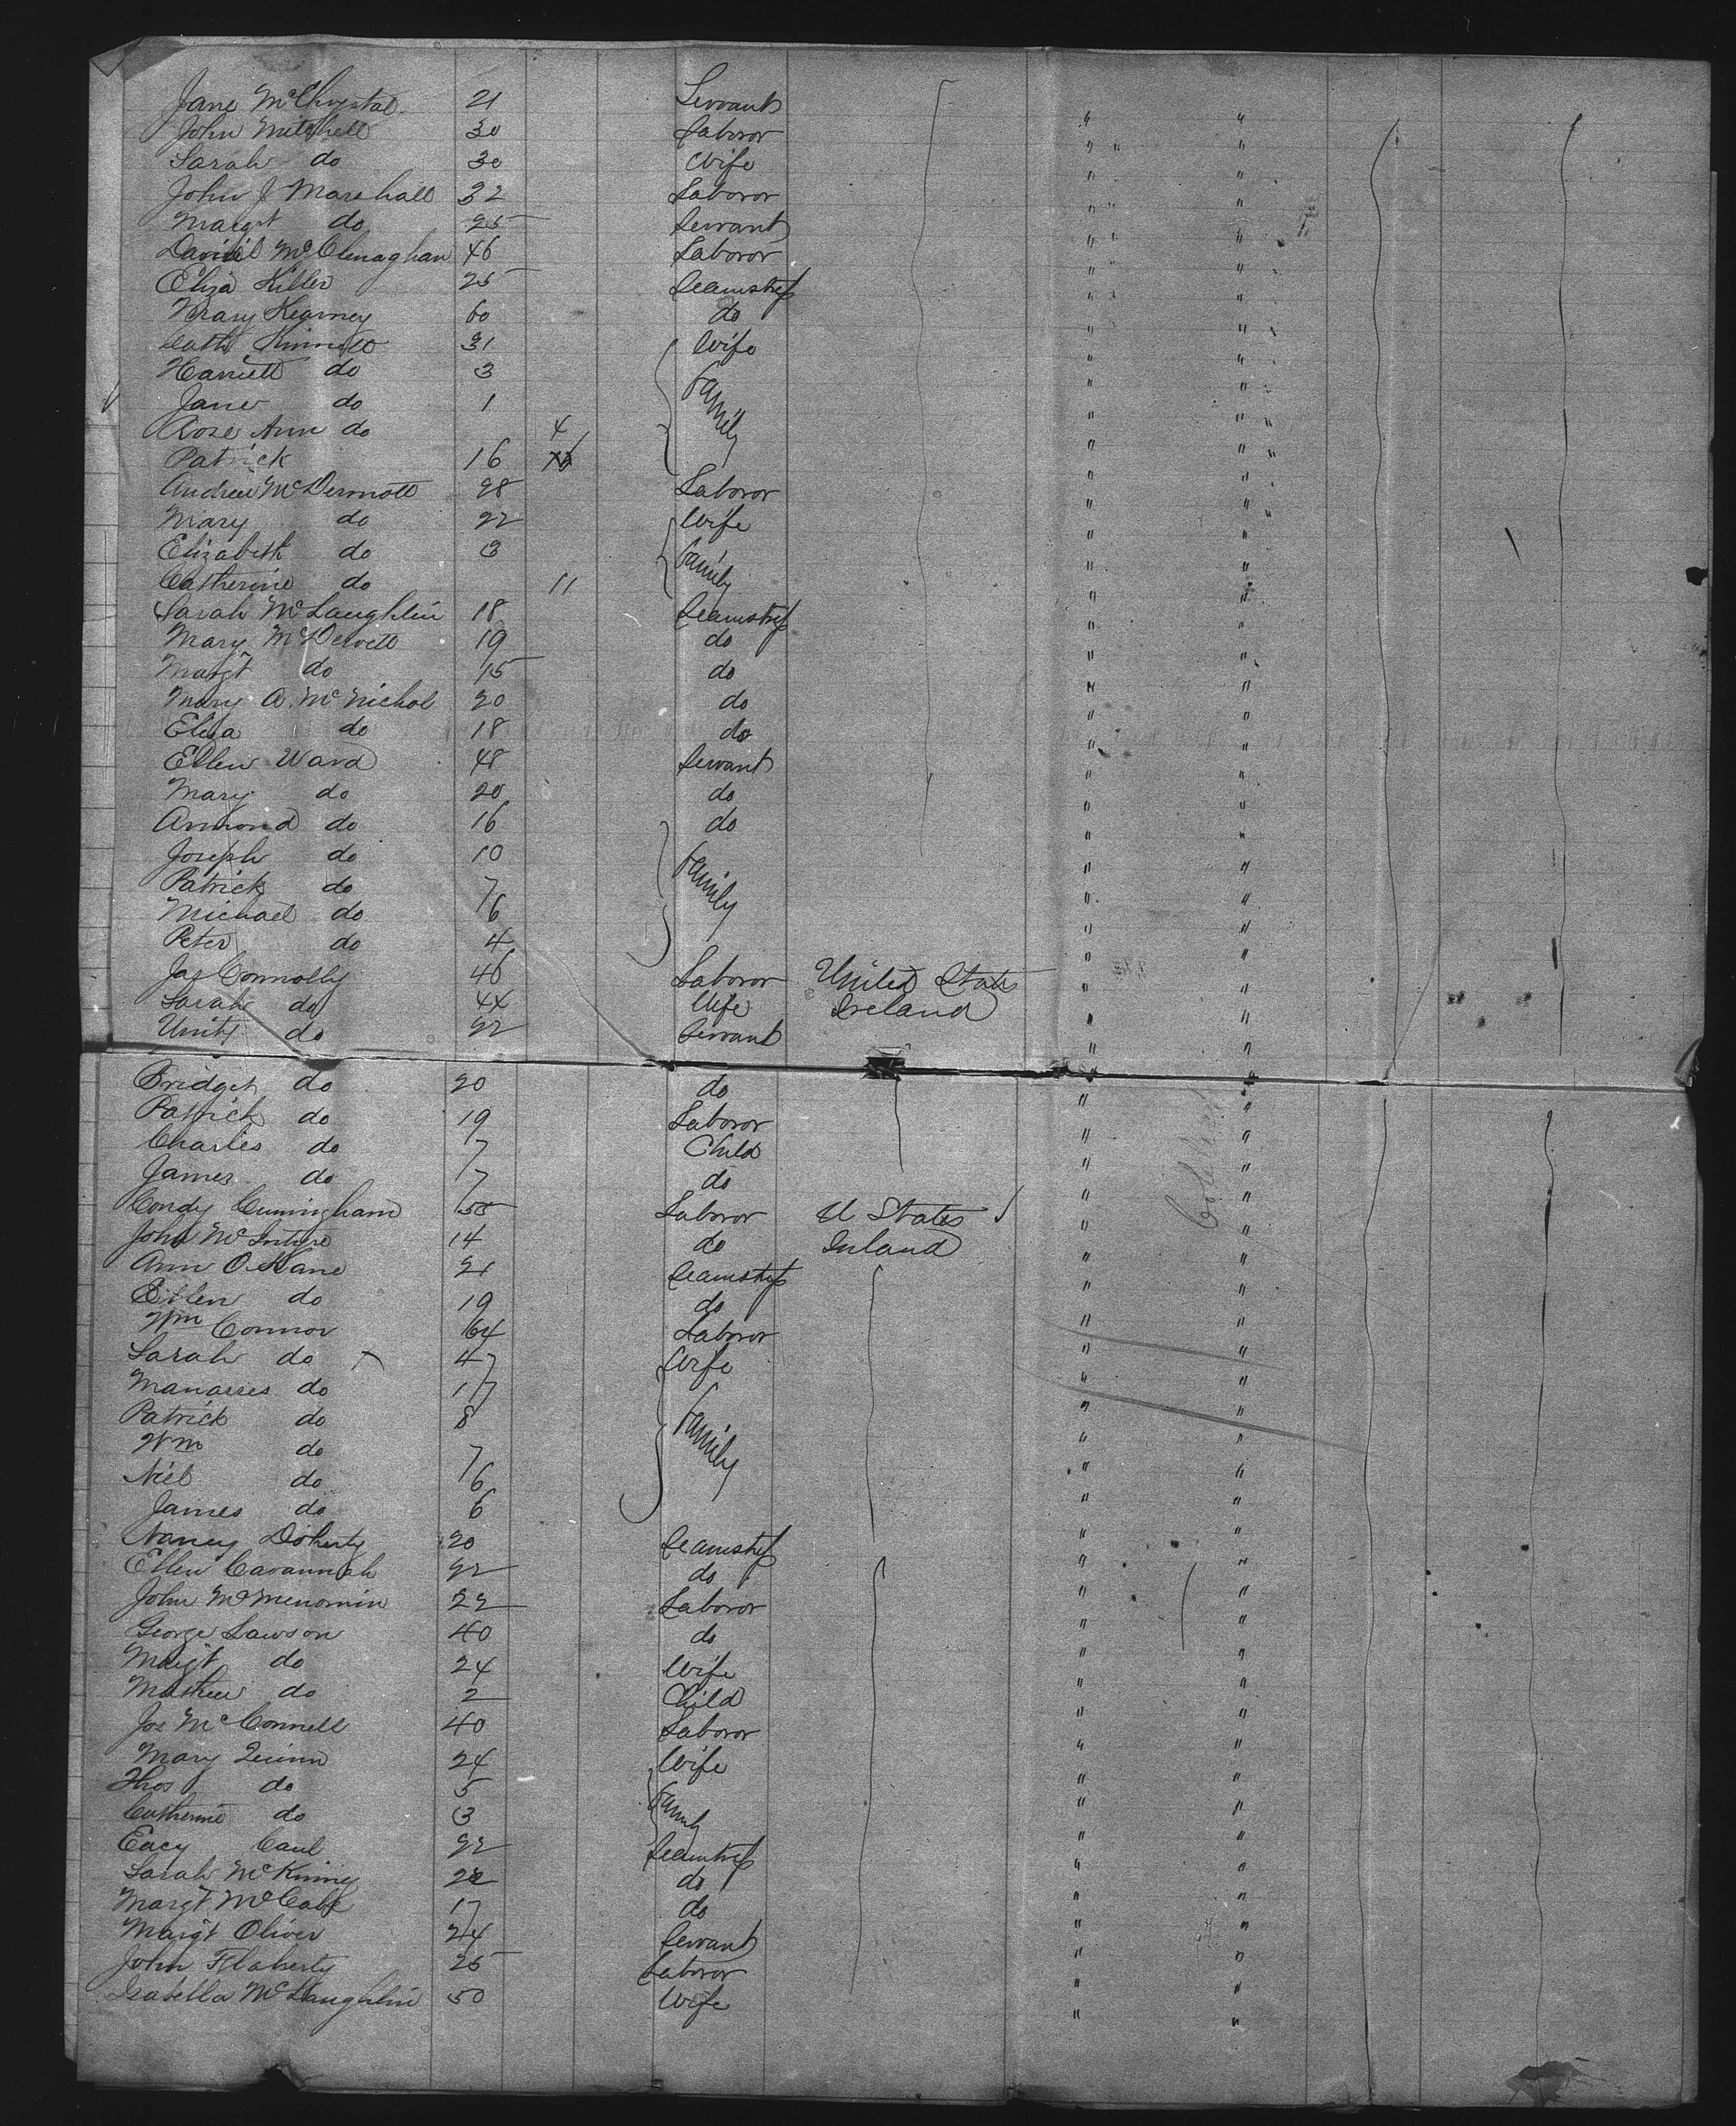 Jane McChrystal 21 Servant
John Mitchell 30 Laboror " "
Sarah do 30 Wife " " "
John J Marshall 32 Laboror " "
Margt do 25 Servant " " "
Daniel McClenaghan 46 Laboror " " "
Eliza 25 Seamstress " "
Mary Kearney 60 do " "
Cath 31 Wife " "
Harriett do 3 Family " "
Jane do 1 " "
Rose Ann do 4 " "
Patrick 16 " "
Andrew McDermott 28 Laboror " "
Mary do 22 Wife " "
Elizabeth do 3 Family " "
Catherine do 11 " "
Sarah McLaughlin 18 Seamstress " "
Mary McDevett 19 do " "
Margt do 15 do " "
Mary A. McNichol 20 do " "
Eliza do 18 do " "
Ellen Ward 48 Servant " "
Mary do 20 do " "
do 16 do " "
Joseph do 10 Family " "
Patrick do 7 " "
Michael do 6 " "
Peter do 4 " "
Jas Connolly 46 Laboror United States " "
Sarah do 44 Wife Ireland " "
Unity do 22 Servant " "
Bridget do 20 do " "
Patrick do 19 Laboror " "
Charles do 7 Child " "
James do 7 do " "
Condy Cuningham 55 Laboror U States " "
John McIntyre 14 do Ireland " "
Ann O.Kane 21 Seamstress " "
Ellen do 19 do " "
Wm Connor 64 Laboror " "
Sarah do 47 Wife " "
Manasses do 17 Family " "
Patrick do 8 " "
Wm do 7 " "
Niel do 6 " "
James do 6 " "
Nancy Doherty 20 Seamstress " "
Ellen Cavannah 22 do " "
John McMenomin 22 Laboror " "
George Lawson 40 do " "
Margt do 24 Wife " "
Mathew do 2 Child " "
Jos McConnell 40 Laboror " "
Mary Quinn 24 Wife " "
Thos do 5 Family " "
Catherine do 3 " "
Caul 22 Seamstress " "
Sarah McKinney do " "
Margt McCabe 17 do " "
Margt Oliver 24 Servant " "
John Flaherty 25 Laboror " "
Isabella McLaughlin 50 Wife " "